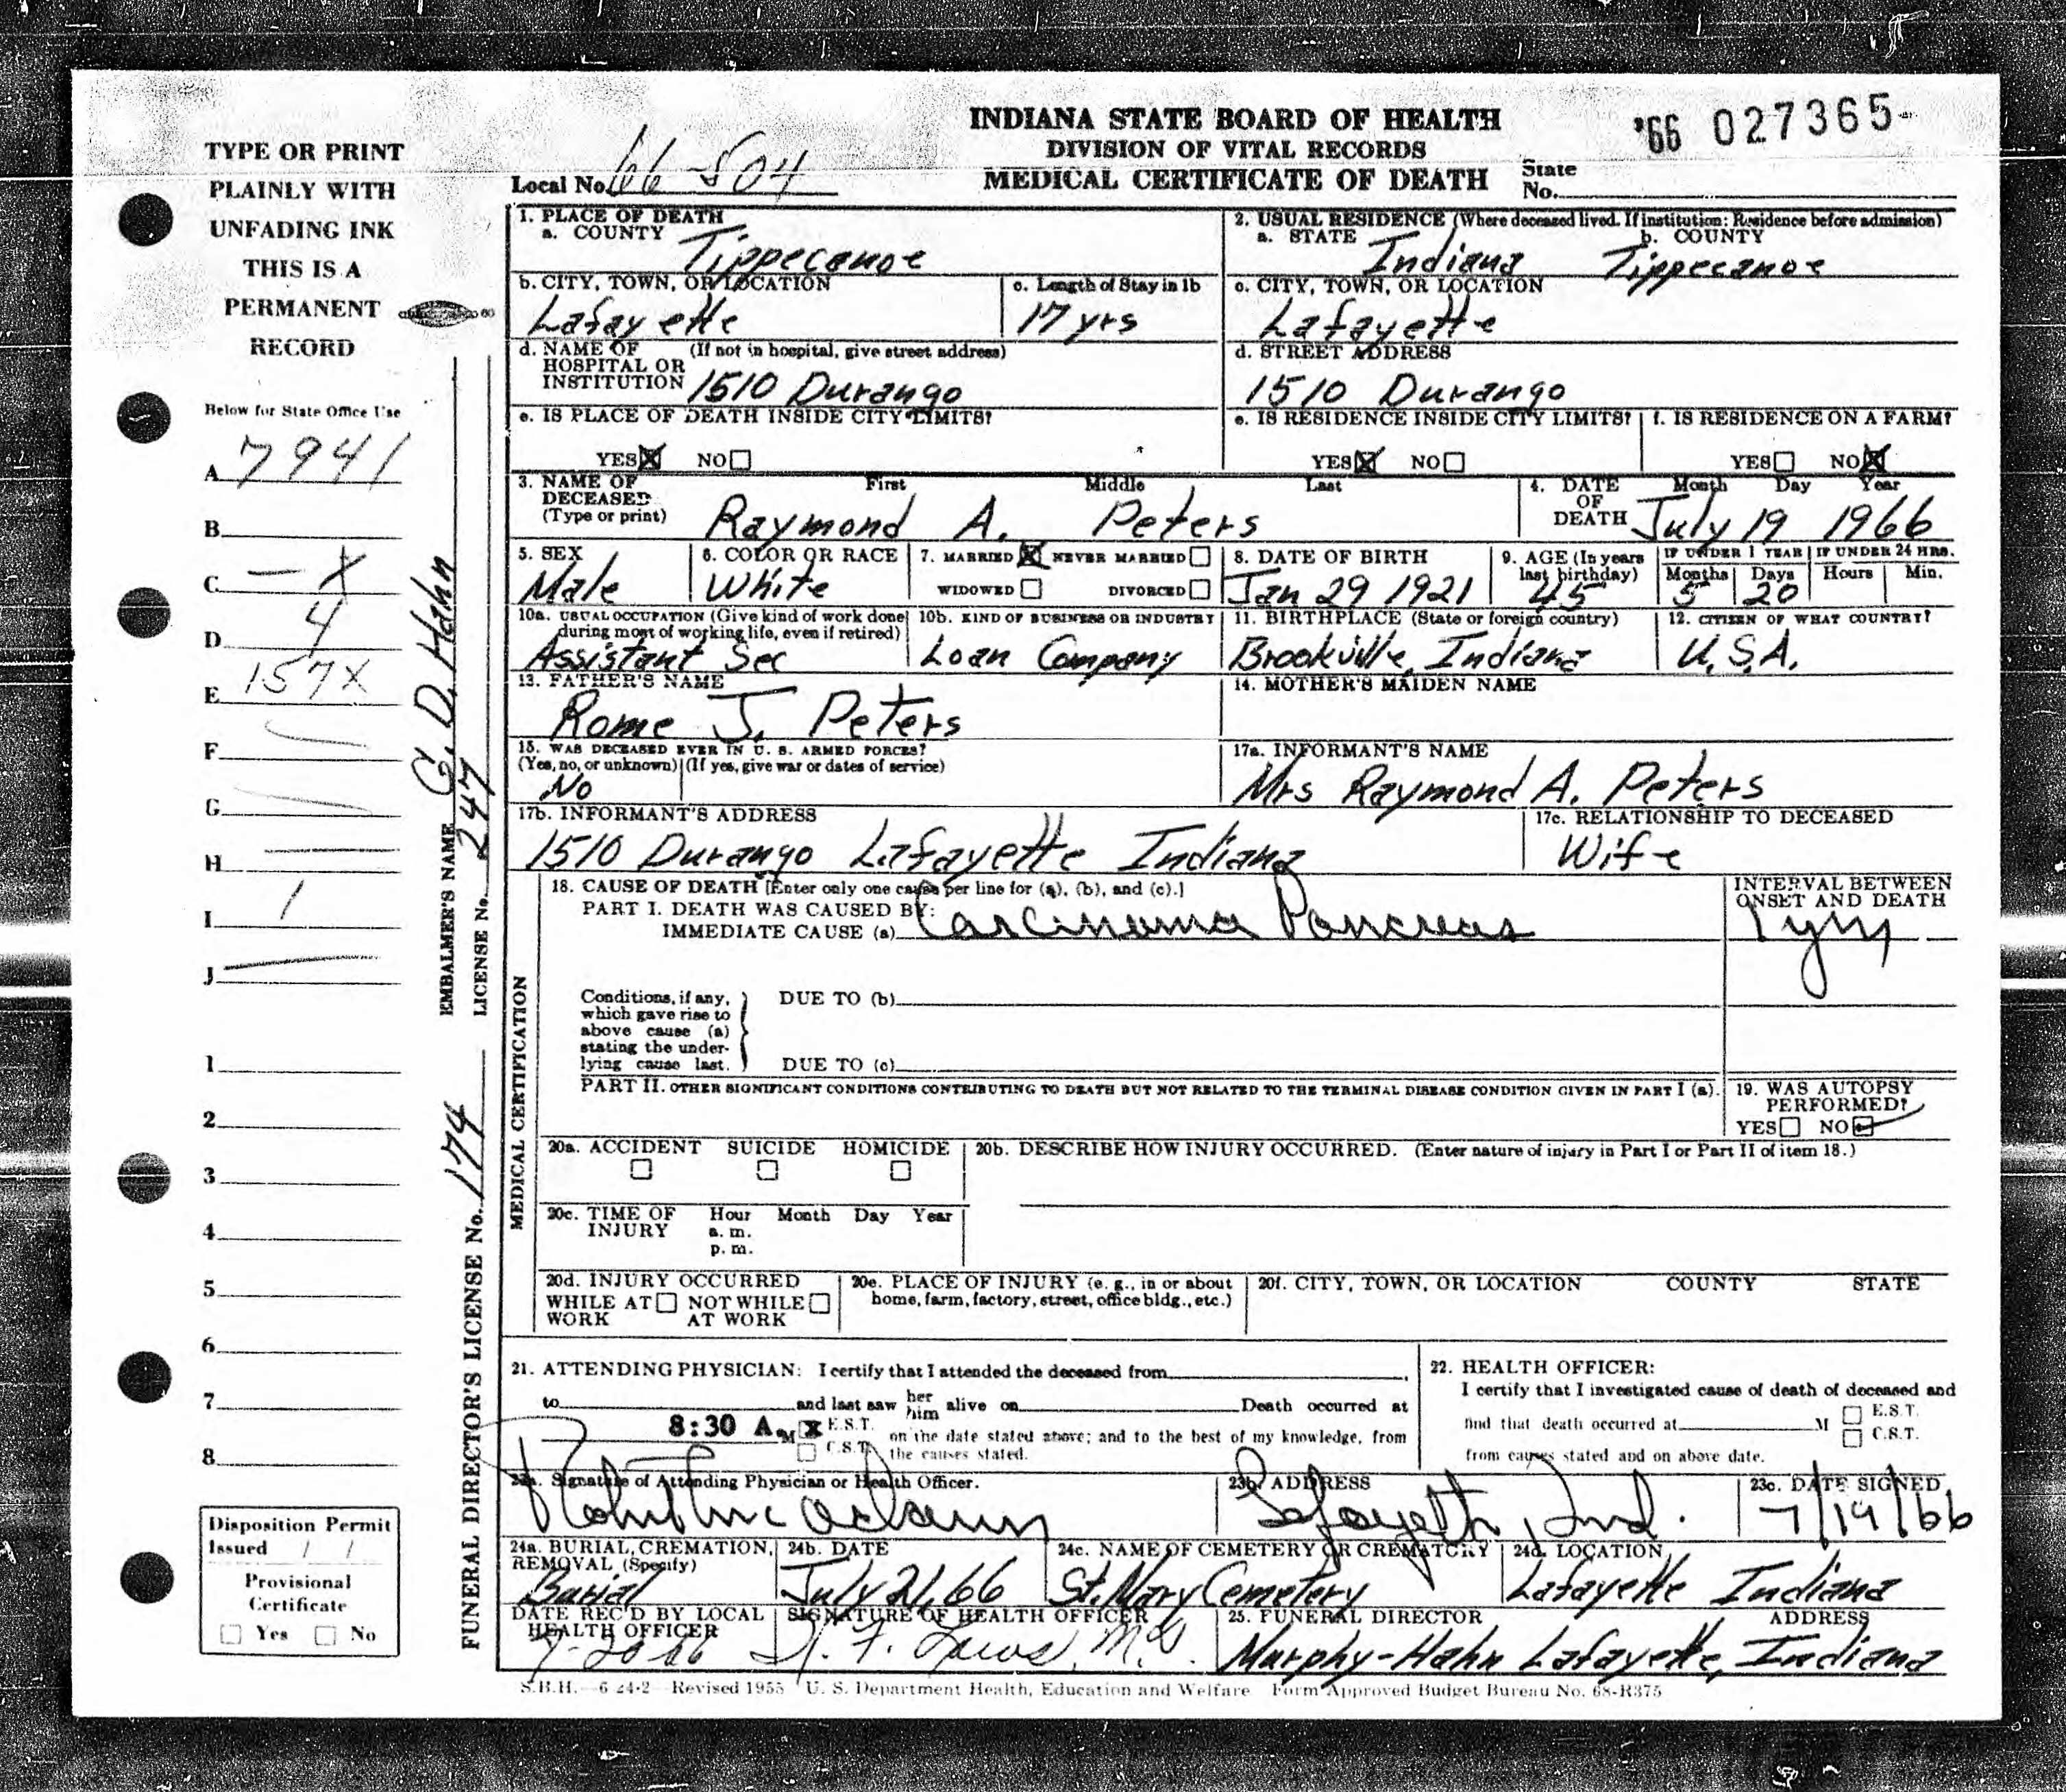 INDIANA STATE BOARD OF HEALTH
DIVISION OF VITAL RECORDS
MEDICAL CERTIFICATE OF DEATH
'66 027365
State No.
Local No. 66-504
TYPE OR PRINT
PLAINLY WITH
UNFADING INK
THIS IS A
PERMANENT
RECORD
Below for State Office Use
A 7941
B
C — X
D 4
E 157X
F
G
H
I 1
J
1
2
3
4
5
6
7
8
Disposition Permit
Issued / /
Provisional
Certificate
Yes No
EMBALMER'S NAME G. D. Hahn
LICENSE No. 247
FUNERAL DIRECTOR'S LICENSE No. 174
1. PLACE OF DEATH
a. COUNTY Tippecanoe
2. USUAL RESIDENCE (Where deceased lived. If institution: Residence before admission)
a. STATE Indiana b. COUNTY Tippecanoe
b. CITY, TOWN, OR LOCATION Lafayette
c. Length of Stay in 1b 17 yrs
c. CITY, TOWN, OR LOCATION Lafayette
d. NAME OF HOSPITAL OR INSTITUTION (If not in hospital, give street address) 1510 Durango
d. STREET ADDRESS 1510 Durango
e. IS PLACE OF DEATH INSIDE CITY LIMITS?
YES X NO
e. IS RESIDENCE INSIDE CITY LIMITS?
YES X NO
f. IS RESIDENCE ON A FARM?
YES NO X
3. NAME OF DECEASED (Type or print) First Middle Last
Raymond A. Peters
4. DATE OF DEATH Month Day Year
July 19 1966
5. SEX Male
6. COLOR OR RACE White
7. MARRIED X NEVER MARRIED
WIDOWED DIVORCED
8. DATE OF BIRTH Jan 29 1921
9. AGE (In years last birthday) 45
IF UNDER 1 YEAR Months 5 Days 20
IF UNDER 24 HRS. Hours Min.
10a. USUAL OCCUPATION (Give kind of work done during most of working life, even if retired) Assistant Sec
10b. KIND OF BUSINESS OR INDUSTRY Loan Company
11. BIRTHPLACE (State or foreign country) Brookville, Indiana
12. CITIZEN OF WHAT COUNTRY? U.S.A.
13. FATHER'S NAME Rome J. Peters
14. MOTHER'S MAIDEN NAME
15. WAS DECEASED EVER IN U. S. ARMED FORCES?
(Yes, no, or unknown) (If yes, give war or dates of service)
No
17a. INFORMANT'S NAME Mrs Raymond A. Peters
17b. INFORMANT'S ADDRESS 1510 Durango Lafayette Indiana
17c. RELATIONSHIP TO DECEASED Wife
MEDICAL CERTIFICATION
18. CAUSE OF DEATH [Enter only one cause per line for (a), (b), and (c).]
PART I. DEATH WAS CAUSED BY:
IMMEDIATE CAUSE (a) Carcinoma Pancreas
INTERVAL BETWEEN ONSET AND DEATH
Conditions, if any, which gave rise to above cause (a) stating the underlying cause last.
DUE TO (b)
DUE TO (c)
PART II. OTHER SIGNIFICANT CONDITIONS CONTRIBUTING TO DEATH BUT NOT RELATED TO THE TERMINAL DISEASE CONDITION GIVEN IN PART I (a).
19. WAS AUTOPSY PERFORMED?
YES NO ✓
20a. ACCIDENT SUICIDE HOMICIDE
20b. DESCRIBE HOW INJURY OCCURRED. (Enter nature of injury in Part I or Part II of item 18.)
20c. TIME OF INJURY Hour Month Day Year
a. m.
p. m.
20d. INJURY OCCURRED
WHILE AT WORK NOT WHILE AT WORK
20e. PLACE OF INJURY (e. g., in or about home, farm, factory, street, office bldg., etc.)
20f. CITY, TOWN, OR LOCATION COUNTY STATE
21. ATTENDING PHYSICIAN: I certify that I attended the deceased from
to and last saw her him alive on Death occurred at
8:30 A. M X E.S.T. C.S.T. on the date stated above; and to the best of my knowledge, from the causes stated.
22. HEALTH OFFICER:
I certify that I investigated cause of death of deceased and
find that death occurred at M E.S.T. C.S.T.
from causes stated and on above date.
23a. Signature of Attending Physician or Health Officer.
23b. ADDRESS Lafayette, Ind.
23c. DATE SIGNED 7/19/66
24a. BURIAL, CREMATION, REMOVAL (Specify) Burial
24b. DATE July 21, 66
24c. NAME OF CEMETERY OR CREMATORY St. Mary Cemetery
24d. LOCATION Lafayette Indiana
DATE REC'D BY LOCAL HEALTH OFFICER 7-20-66
SIGNATURE OF HEALTH OFFICER
25. FUNERAL DIRECTOR ADDRESS
Murphy-Hahn Lafayette, Indiana
S.B.H.—6-24-2 Revised 1955 U. S. Department Health, Education and Welfare Form Approved Budget Bureau No. 68-R375